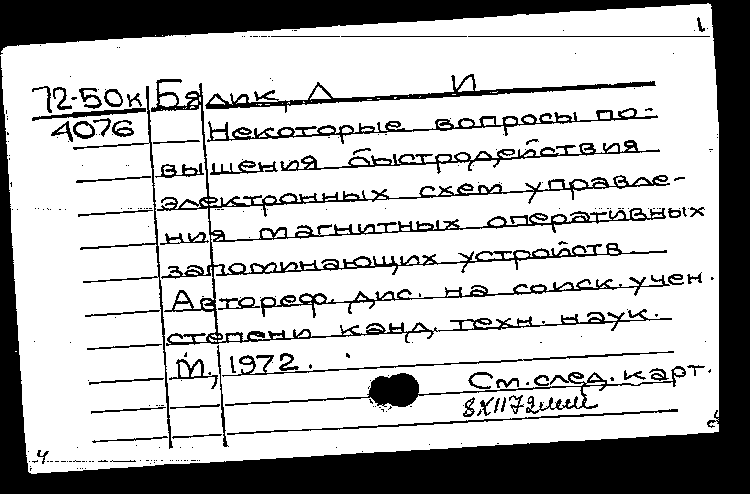 1
72-50к Бядик, Л И
4076 Некоторые вопросы по-
вышения быстродействия
электронных схем управле-
ния магнитных оперативных
запоминающих устройств
Автореф. дис. на соиск. учен.
степени канд. техн. наук.
М., 1972.
См. след. карт.
4